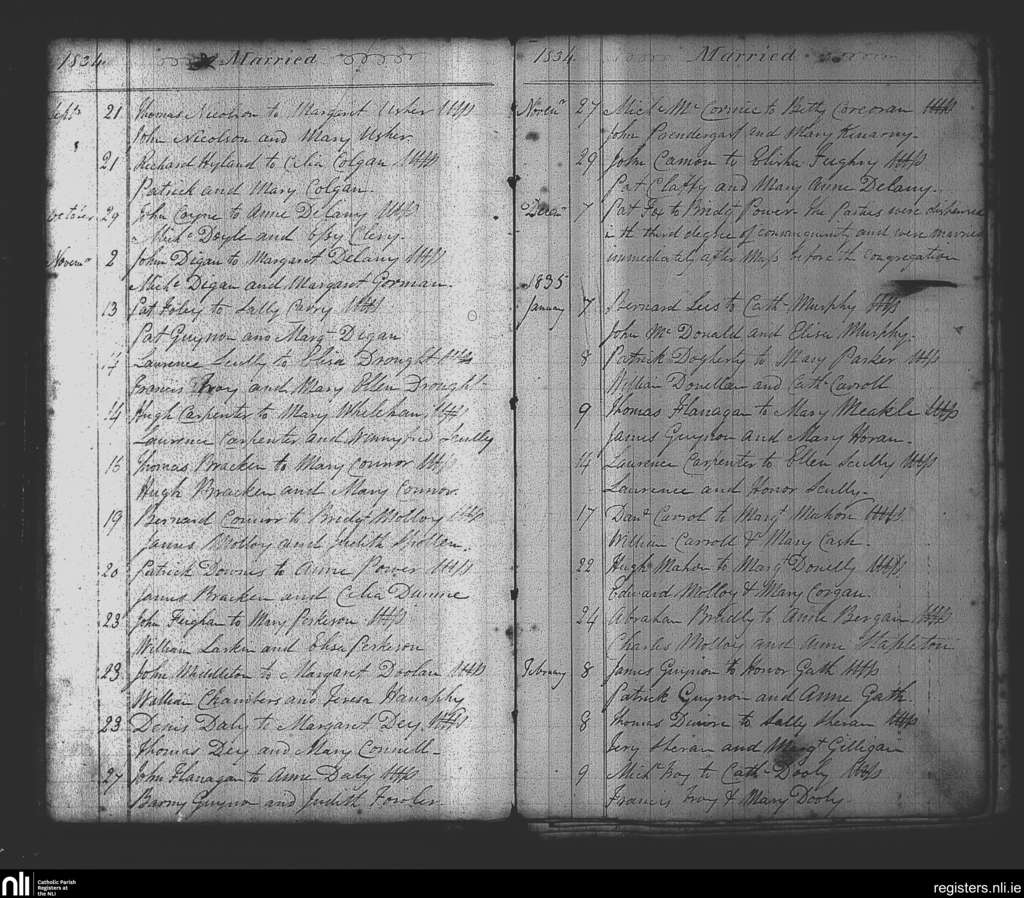 1834 Married
Septr 21 Thomas Nicolson to Margaret Usher Wtfs
John Nicolson and Mary Usher
21 Richard Hyland to Celia Colgan Wtfs
Patrick and Mary Colgan.
October 29 John Coyne to Anne Delany Wtfs
Michl Doyle and Clery.
Novemr 2 John Digan to Margaret Delany Wtfs
Michl Digan and Margaret Gorman.
13 Pat Foley to Sally Carry Wtfs
Pat Guynon and Margt Digan
17 Laurence Scully to Eliza Drought Wtfs
Francis and Mary Ellen Drought
14 Hugh Carpenter to Mary Whelehan Wtfs
Laurence Carpenter and Scully
15 Thomas Bracken to Mary Connor Wtfs
Hugh Bracken and Mary Connor.
19 Bernard Connor to Bridgt Molloy Wtfs
James Molloy and Judith
20 Patrick Downs to Anne Power Wtfs
James Bracken and Celia Dunne
23 John Feighan to Mary Perkeson Wtfs
William Larkin and Elisa Perkeson
23 John Middleton to Margaret Doolan Wtfs
William Chambers and Teresa Hanaphy
23 Denis Daly to Margaret Dey Wtfs
Thomas Dey and Mary Connell
27 John Flanagan to Anne Daly Wtfs
Barny Guynon and Judith Fowler
1834 Married
Novemr 27 Michl Mc Cormic to Betty Corcoran Wtfs
John Prendergast and Mary Kinarny.
29 John Camon to Elisha Feighry Wtfs
Pat Claffy and Mary Anne Delany.
Decemr 7 Pat Fox to Bridgt Power the Parties were dispensed
in the third degree of consanguinity and were married
immediately after Mass before the Congregation
1835
January 7 Bernard Lees to Cath Murphy Wtfs
John Mc Donald and Elisa Murphy.
8 Patrick Dogherty to Mary Parker Wtfs
William Donellan and Cath Carroll
9 Thomas Flanagan to Mary Meakle Wtfs
James Guynon and Mary Horan.
14 Laurence Carpenter to Ellen Scully Wtfs
Laurence and Honor Scully.
17 Danl Carrol to Margt Mahon Wtfs
William Carroll & Mary Cash.
22 Hugh Mahon to Margt Donelly Wtfs
Edward Molloy & Mary Corgan.
24 Abraham to Anne Bergan Wtfs
Charles Molloy and Anne Stapleton
February 8 James Guynon to Honor Gath Wtfs
Patrick Guynon and Anne Gath.
8 Thomas to Sally Sheran Wtfs
Jery Sheran and Margt Gilligan
9 Michl to Cath Dooly Wtfs
Francis & Mary Dooly
nli Catholic Parish
Registers at
the NLI
registers.nli.ie